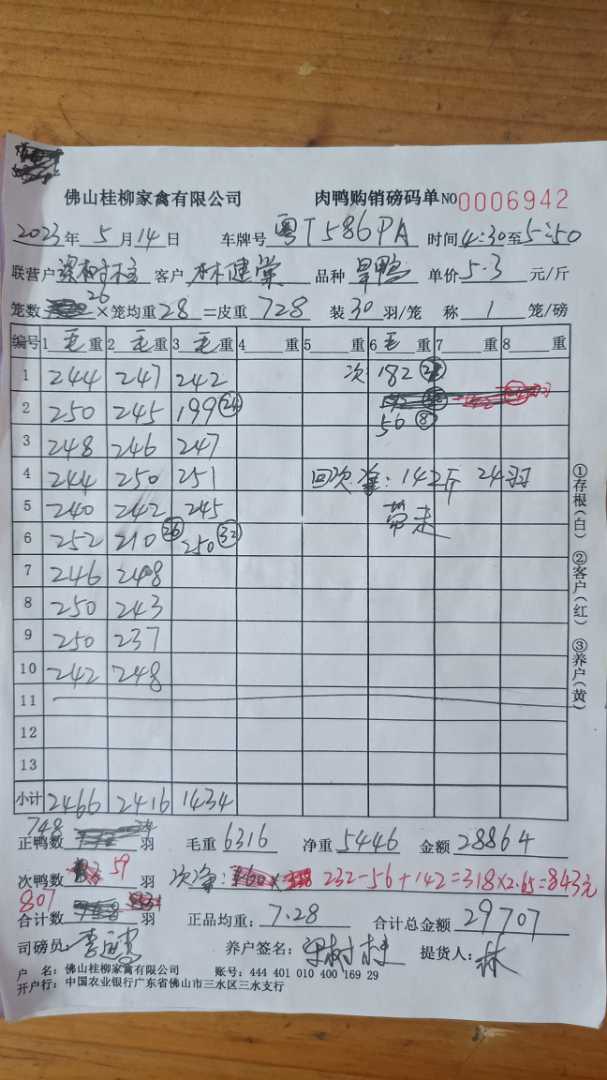 佛山桂柳家禽有限公司 肉鸭购销磅码单 NO 0006942
2023年 5 月 14 日 车牌号 粤T586PA 时间 4:30 至 5:50
联营户 梁树柱 客户 林健棠 品种 旱鸭 单价 5.3 元/斤
笼数 26 ×笼均重 28 =皮重 728 装 30 羽/笼 称 1 笼/磅
编号 1 毛 重 2 毛 重 3 毛 重 4 重 5 重 6 毛 重 7 重 8 重
1 244 247 242 次: 182
2 250 245 199 24
3 248 246 247 56 8
4 244 250 251 回次净: 142斤 24羽
5 240 242 245 带走
6 252 210 26 250 32
7 246 248
8 250 243
9 250 237
10 242 248
11
12
13
小计 2466 2416 1434
①存根(白) ②客户(红) ③养户(黄)
正鸭数 748 羽 毛重 6316 净重 5446 金额 28864
次鸭数 59 羽 次净: 232-56+142=318×2.65=843元
合计数 807 羽 正品均重: 7.28 合计总金额 29707
司磅员: 养户签名: 梁树柱 提货人: 林
户 名: 佛山桂柳家禽有限公司 账号: 444 401 010 400 169 29
开户行: 中国农业银行广东省佛山市三水区三水支行